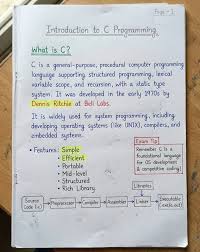 Page - 1
Introduction to C Programming
What is C?
C is a general-purpose, procedural computer programming
language supporting structured programming, lexical
variable scope, and recursion, with a static type
system. It was developed in the early 1970s by
Dennis Ritchie at Bell Labs.
It is widely used for system programming, including
developing operating systems (like UNIX), compilers, and
embedded systems.
• Features: Simple
Efficient
Portable
Mid-level
Structured
Rich Library
Exam Tip
Remember C is a
foundational language
for OS development
& competitive coding!
Libraries
Source
Code (.c)
Preprocessor
Compiler
Assembler
Linker
Executable